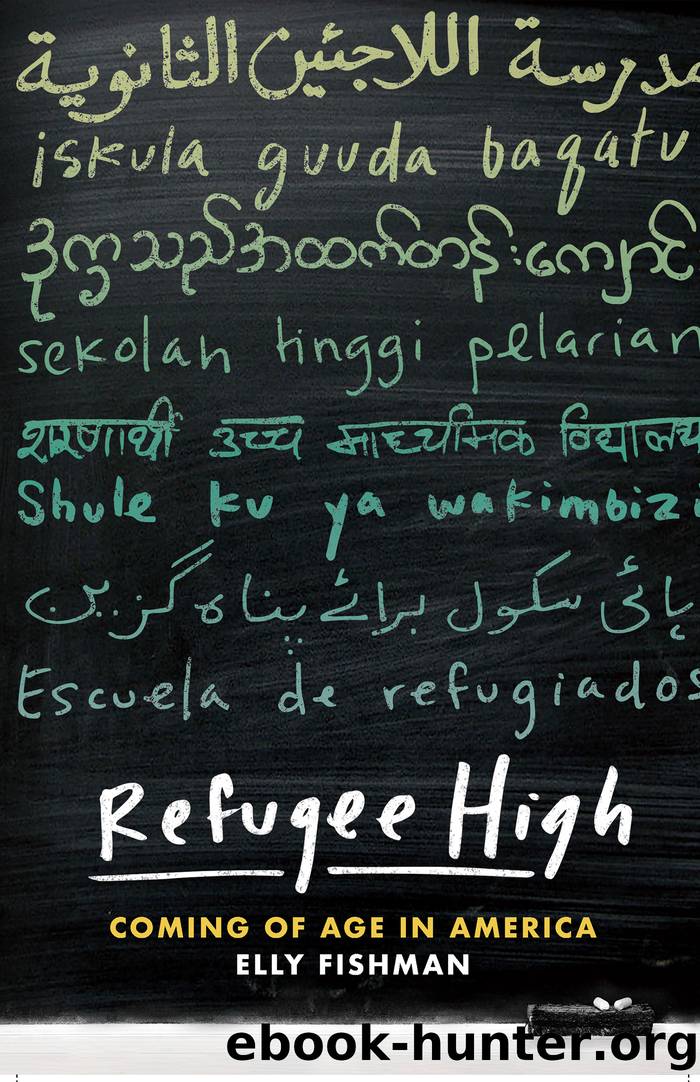 مدرسة اللاجئين الثانوية
iskula guuda baqatu
ဒုက္ခသည်အထက်တန်းကျောင်
sekolah tinggi pelarian
शरणार्थी उच्च माध्यमिक विद्यालय
Shule ku ya wakimbizi
ہائی سکول برائے پناہ گزین
Escuela de refugiados
Refugee High
COMING OF AGE IN AMERICA
ELLY FISHMAN
ebook-hunter.org